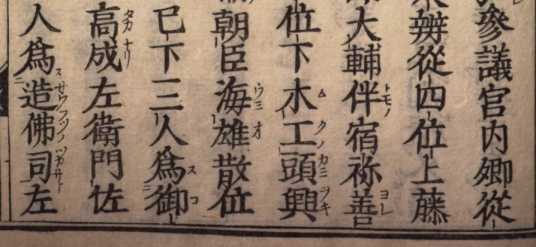 參議官内卿從
辨從四位上藤
大輔伴宿祢善
位下木工頭興
朝臣海雄散位
已下三人爲御
高成左衛門佐
人爲造佛司左